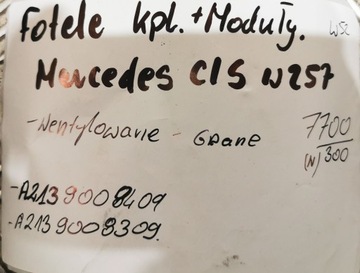 Fotele kpl. + Moduły.
WSZ
Mercedes ClS W257
- Wentylowane - Grane
7700
(N) 300
- A2139008409
- A2139008309.